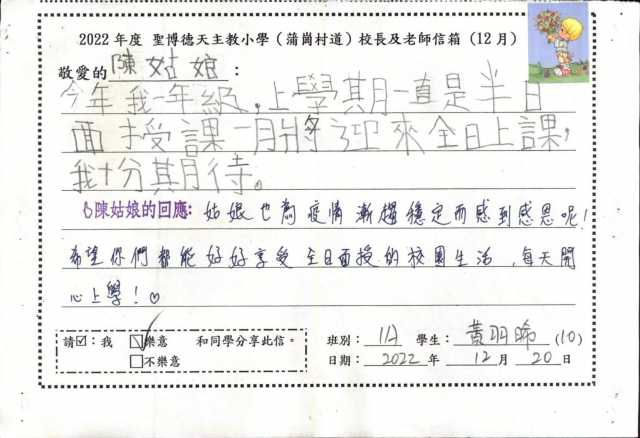 2022 年度 聖博德天主教小學（蒲崗村道）校長及老師信箱 (12 月)
敬愛的陳姑娘：
今年我一年級,上學期一直是半日
面授課一月將迎來全日上課,
我十分期待。
陳姑娘的回應: 姑娘也為疫情漸趨穩定而感到感恩呢!
希望你們都能好好享受全日面授的校園生活,每天開
心上學!♡
請☑：我 ☑樂意 和同學分享此信。
□不樂意
班別： 1A 學生： 黃羽晞 (10)
日期： 2022 年 12 月 20 日